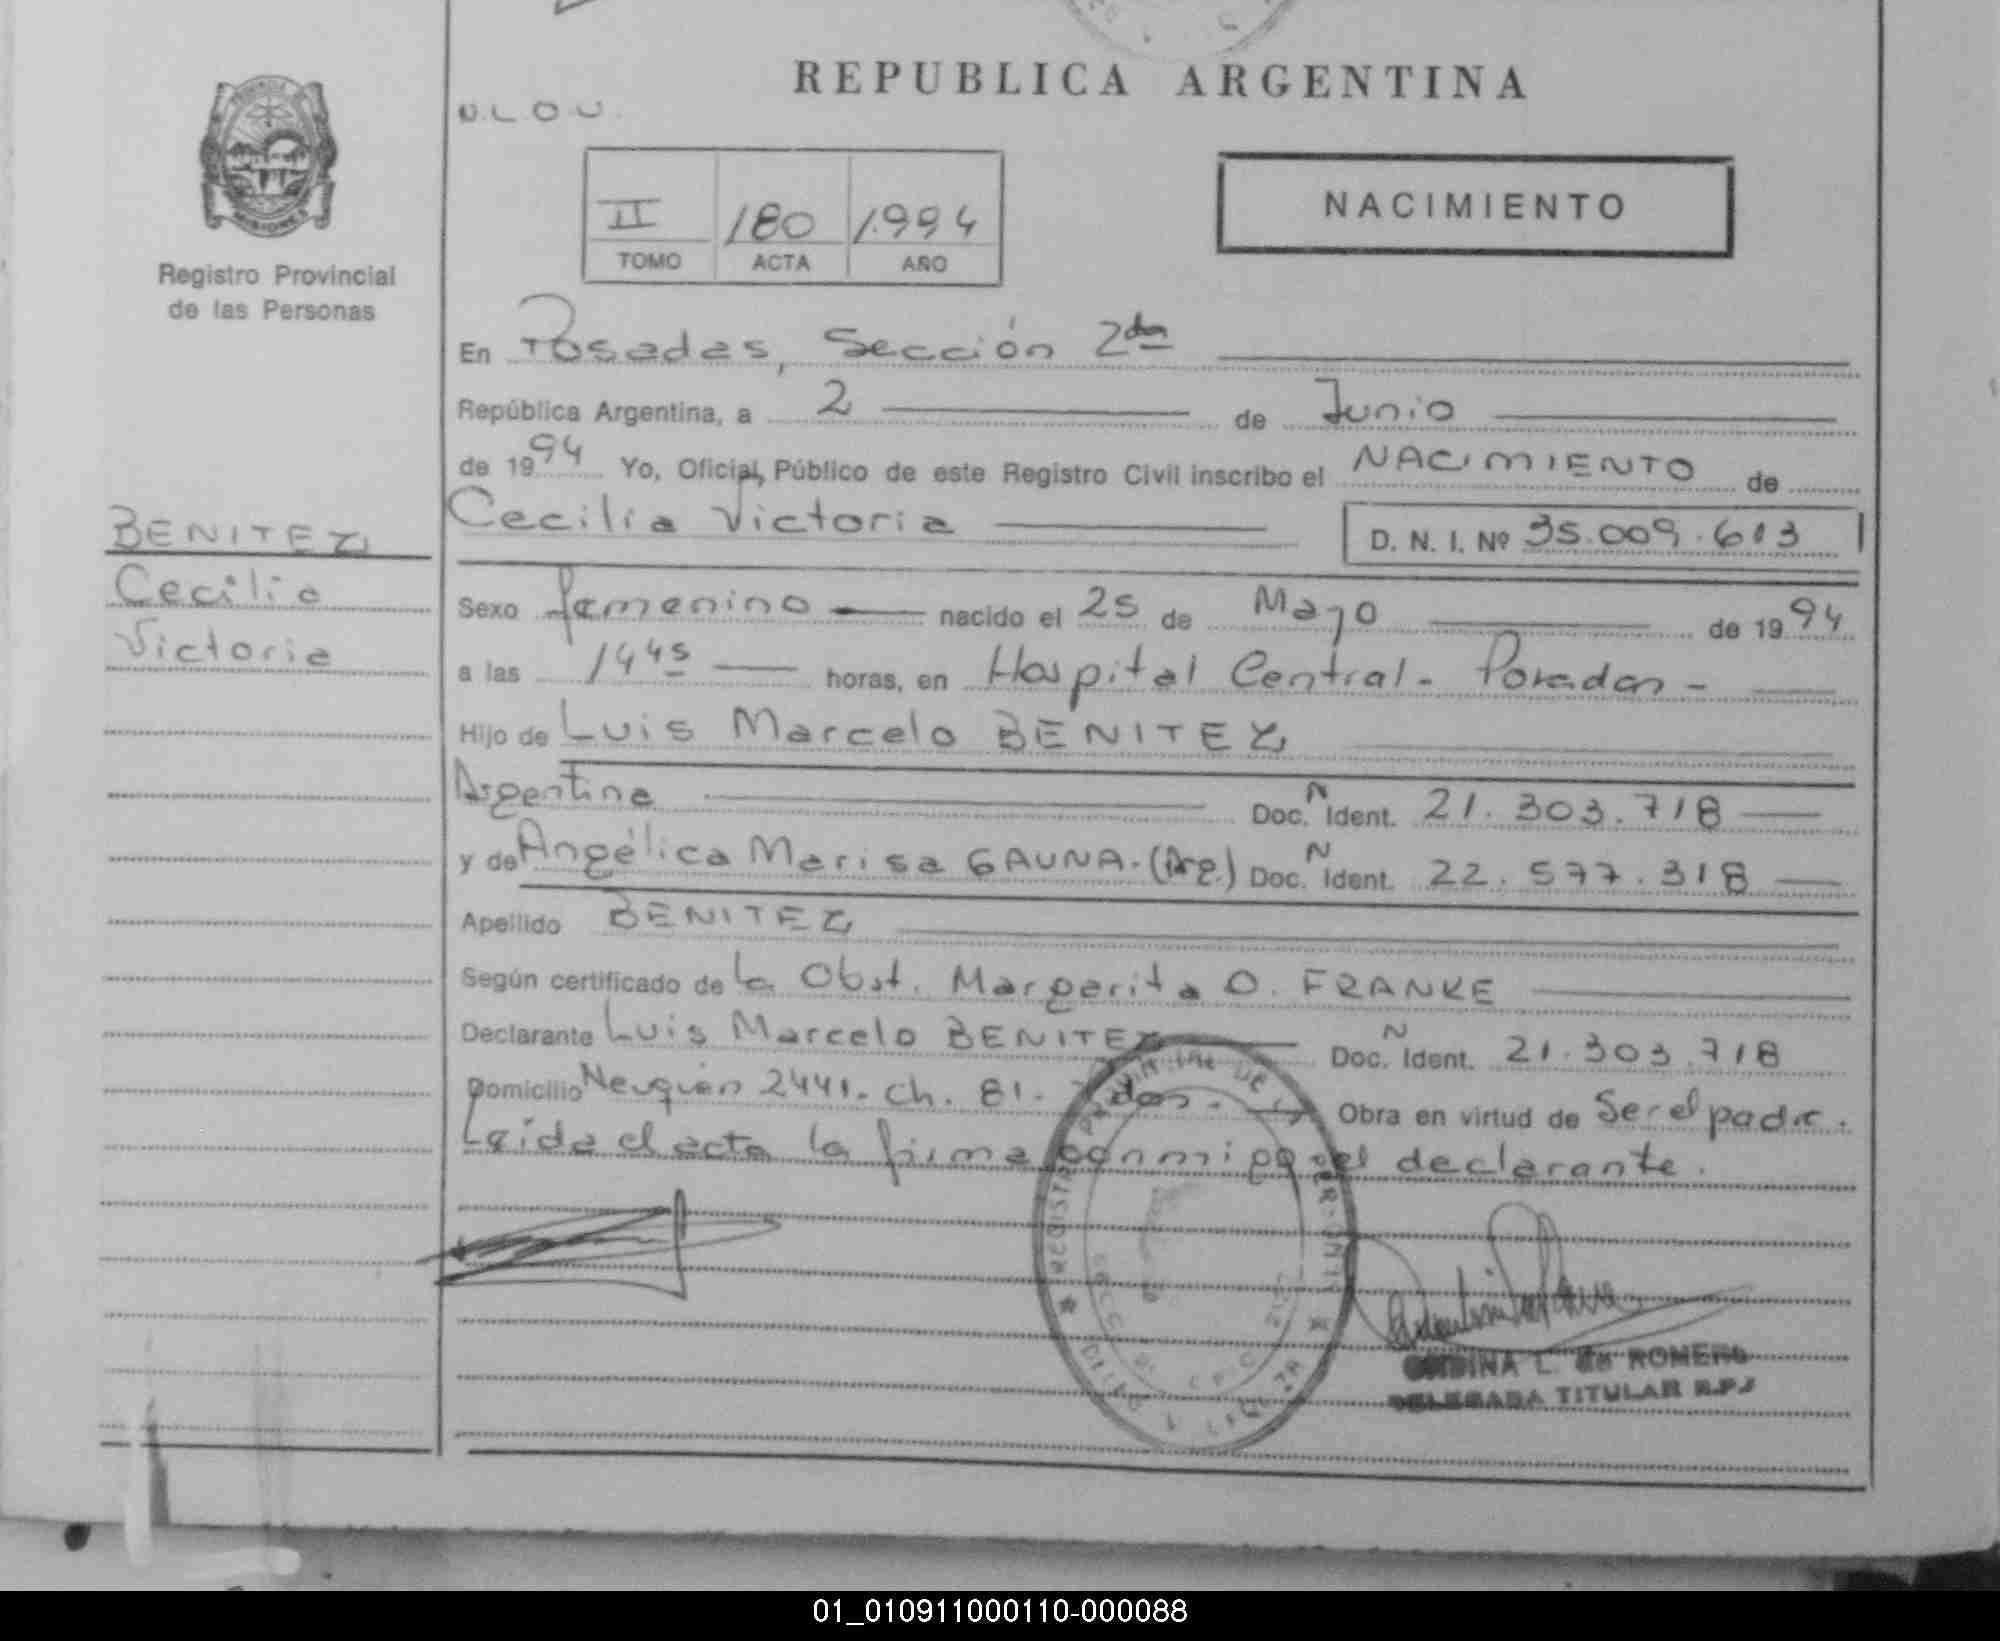 REPUBLICA ARGENTINA
N.L.O.U.
II 180 1.994
TOMO ACTA AÑO
NACIMIENTO
MISIONES
Registro Provincial
de las Personas
En Posadas, Sección 2da
República Argentina, a 2 de Junio
de 1994 Yo, Oficial Público de este Registro Civil inscribo el NACIMIENTO de
Cecilia Victoria D. N. I. Nº 35.009.613
BENITEZ
Cecilia
Victoria
Sexo femenino nacido el 25 de Mayo de 1994
a las 1445 horas, en Hospital Central - Posadas -
Hijo de Luis Marcelo BENITEZ
Argentina Doc. N Ident. 21.303.718
y de Angélica Marisa GAUNA. (Arg.) Doc. N Ident. 22.577.318
Apellido BENITEZ
Según certificado de la Obst. Margarita O. FRANKE
Declarante Luis Marcelo BENITEZ Doc. N Ident. 21.303.718
Domicilio Neuquén 2441. Ch. 81. Pdas. Obra en virtud de Ser el padre.
Leída el acta la firma conmigo el declarante.
L. de ROMERO
DELEGADA TITULAR R.P.
01_010911000110-000088